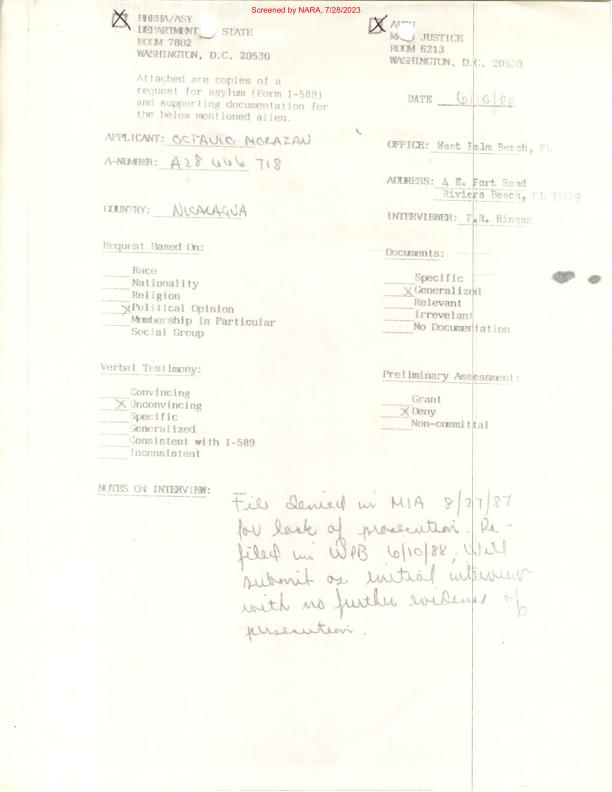 Screened by NARA, 7/28/2023
BHRHA/ASY
DEPARTMENT STATE
ROOM 7802
WASHINGTON, D.C. 20530
JUSTICE
ROOM 6213
WASHINGTON, D.C. 20530
Attached are copies of a
request for asylum (Form I-589)
and supporting documentation for
the below mentioned alien.
DATE 6/10/88
APPLICANT: OCTAVIO MORAZAN
OFFICE: West Palm Beach, FL
A-NUMBER: A28 646 718
ADDRESS: 4 E. Port Road
Riviera Beach, FL
COUNTRY: NICARAGUA
INTERVIEWER: R. Hinman
Request Based On:
Race
Nationality
Religion
X Political Opinion
Membership in Particular
Social Group
Documents:
Specific
X Generalized
Relevant
Irrevelant
No Documentation
Verbal Testimony:
Convincing
X Unconvincing
Specific
Generalized
Consistent with I-589
Inconsistent
Preliminary Assessment:
Grant
X Deny
Non-committal
NOTES ON INTERVIEW:
File denied in MIA 8/27/87
for lack of prosecution. Re-
filed in WPB 6/10/88, Will
submit as initial interview
with no further evidence of
persecution.